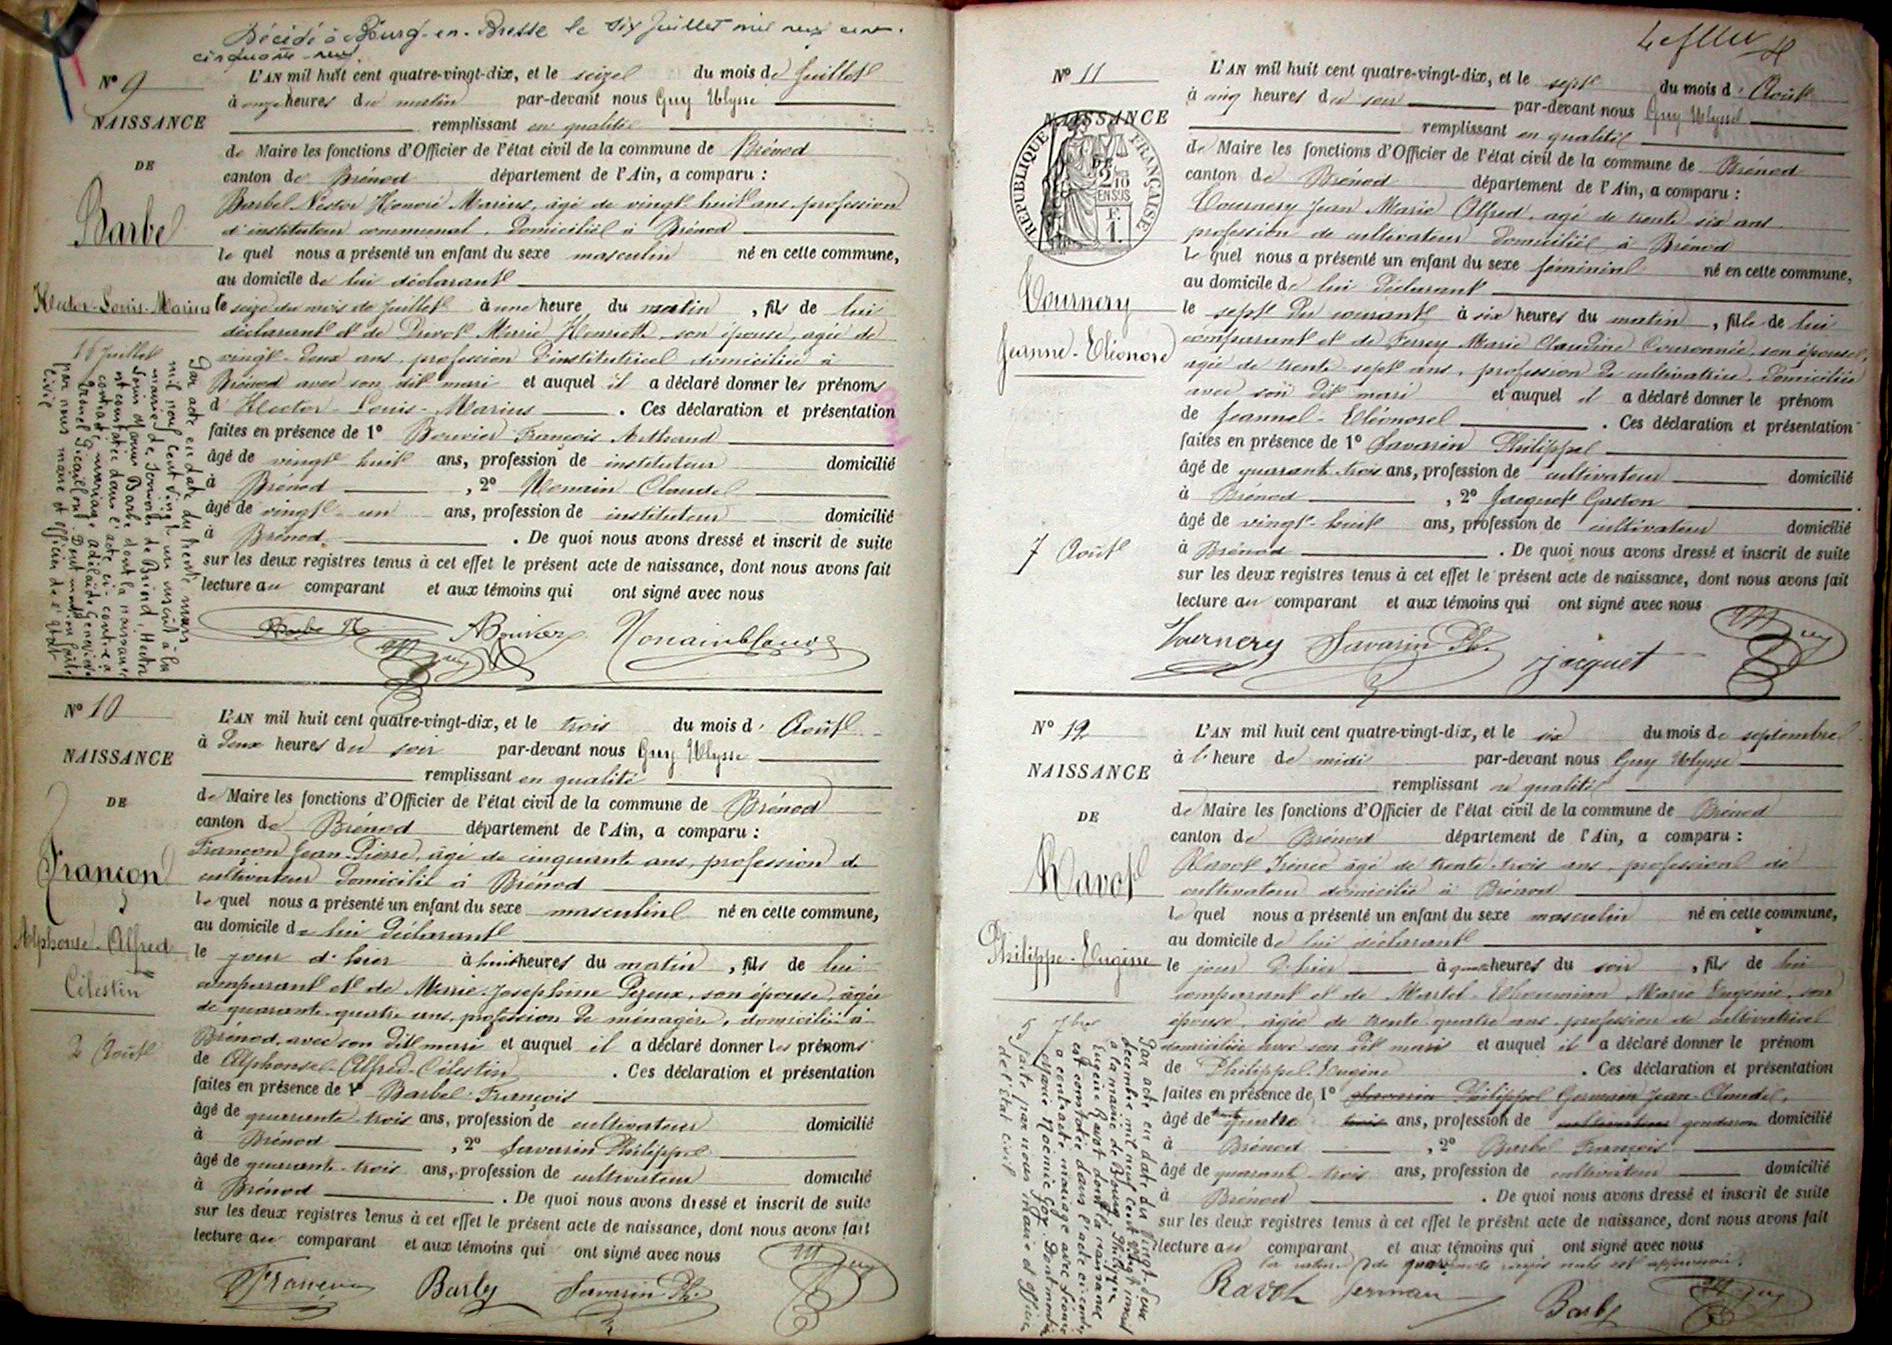 Décédé à Bourg-en-Bresse le six Juillet mil neuf cent
cinquante-neuf.
N° 9
NAISSANCE
DE
Barbe
Hector-Louis-Marius
16 Juillet
Par acte en date du trente mars
mil neuf cent vingt un inscrit à la
mairie de
Louis Marius Barbe dont la naissance
est constatée dans l'acte ci-contre a
contracté mariage
Dont mention faite
par nous maire et officier de l'état
civil
L'AN mil huit cent quatre-vingt-dix, et le seize du mois de Juillet
à onze heures du matin par-devant nous Guy Ulysse
remplissant en qualité
de Maire les fonctions d'Officier de l'état civil de la commune de Brénod
canton de Brénod département de l'Ain, a comparu :
Barbe Nestor Honoré Marius, âgé de vingt huit ans, profession
d'instituteur communal, domicilié à Brénod
le quel nous a présenté un enfant du sexe masculin né en cette commune,
au domicile de lui déclarant
le seize du mois de Juillet à une heure du matin, fils de lui
déclarant et de Marie Henriette, son épouse, agée de
vingt-deux ans, profession d'institutrice, domiciliée à
Brénod avec son dit mari et auquel il a déclaré donner les prénoms
d'Hector-Louis-Marius. Ces déclaration et présentation
faites en présence de 1° Bouvier François
âgé de vingt huit ans, profession de instituteur domicilié
à Brénod, 2° Claude
âgé de vingt-un ans, profession de instituteur domicilié
à Brénod. De quoi nous avons dressé et inscrit de suite
sur les deux registres tenus à cet effet le présent acte de naissance, dont nous avons fait
lecture au comparant et aux témoins qui ont signé avec nous
Barbe N ABouvier Guy
N° 10
NAISSANCE
DE
Françon
Alphonse-Alfred
Célestin
2 Août
L'AN mil huit cent quatre-vingt-dix, et le trois du mois d'Août
à deux heures du soir par-devant nous Guy Ulysse
remplissant en qualité
de Maire les fonctions d'Officier de l'état civil de la commune de Brénod
canton de Brénod département de l'Ain, a comparu :
Françon Jean-Pierre, âgé de cinquante ans, profession de
cultivateur domicilié à Brénod
le quel nous a présenté un enfant du sexe masculin né en cette commune,
au domicile de lui déclarant
le jour d'hier à huit heures du matin, fils de lui
comparant et de Marie-Josephine Pezeux, son épouse, agée
de quarante-quatre ans, profession de ménagère, domiciliée à
Brénod, avec son dit mari et auquel il a déclaré donner les prénoms
de Alphonse-Alfred-Célestin. Ces déclaration et présentation
faites en présence de 1° Barbe François
âgé de quarante-trois ans, profession de cultivateur domicilié
à Brénod, 2° Savarin Philippe
âgé de quarante-trois ans, profession de cultivateur domicilié
à Brénod. De quoi nous avons dressé et inscrit de suite
sur les deux registres tenus à cet effet le présent acte de naissance, dont nous avons fait
lecture au comparant et aux témoins qui ont signé avec nous
Françon Barbe Savarin Ph. Guy
N° 11
NAISSANCE
DE
REPUBLIQUE FRANÇAISE
2/10
EN SUS
1 F.
Tournery
Jeanne-Eléonore
7 Août
L'AN mil huit cent quatre-vingt-dix, et le sept du mois d'Août
à cinq heures du soir par-devant nous Guy Ulysse
remplissant en qualité
de Maire les fonctions d'Officier de l'état civil de la commune de Brénod
canton de Brénod département de l'Ain, a comparu :
Tournery Jean Marie Alfred, agé de trente six ans
profession de cultivateur domicilié à Brénod
le quel nous a présenté un enfant du sexe féminin né en cette commune,
au domicile de lui déclarant
le sept du courant à six heures du matin, fille de lui
comparant et de Marie Claudine Couronnée, son épouse,
agée de trente sept ans, profession de cultivatrice, domiciliée
avec son dit mari et auquel il a déclaré donner le prénom
de Jeanne-Eléonore. Ces déclaration et présentation
faites en présence de 1° Savarin Philippe
âgé de quarante trois ans, profession de cultivateur domicilié
à Brénod, 2° Jacquet Gaston
âgé de vingt-huit ans, profession de cultivateur domicilié
à Brénod. De quoi nous avons dressé et inscrit de suite
sur les deux registres tenus à cet effet le présent acte de naissance, dont nous avons fait
lecture au comparant et aux témoins qui ont signé avec nous
Tournery Savarin Ph. Jacquet Guy
N° 12
NAISSANCE
DE
Ravot
Philippe-Eugène
5 7bre
Par acte en date du vingt-deux
décembre mil neuf cent vingt
à la mairie de Bourg Philippe
Eugène Ravot dont la naissance
est constatée dans l'acte ci-contre
a contracté mariage avec
Noémie Goy. Dont mention
faite par nous maire et officier
de l'état civil
L'AN mil huit cent quatre-vingt-dix, et le six du mois de septembre
à l'heure de midi par-devant nous Guy Ulysse
remplissant en qualité
de Maire les fonctions d'Officier de l'état civil de la commune de Brénod
canton de Brénod département de l'Ain, a comparu :
Ravot Irénée âgé de trente-trois ans, profession de
cultivateur domicilié à Brénod
le quel nous a présenté un enfant du sexe masculin né en cette commune,
au domicile de lui déclarant
le jour d'hier à quatre heures du soir, fils de lui
comparant et de Martel Marie Eugénie, son
épouse, agée de trente-quatre ans, profession de cultivatrice
domiciliée avec son dit mari et auquel il a déclaré donner le prénom
de Philippe Eugène. Ces déclaration et présentation
faites en présence de 1° Savarin Philippe Germain Jean-Claude,
âgé de trente quatre trois ans, profession de cultivateur domicilié
à Brénod, 2° Barbe François
âgé de quarante trois ans, profession de cultivateur domicilié
à Brénod. De quoi nous avons dressé et inscrit de suite
sur les deux registres tenus à cet effet le présent acte de naissance, dont nous avons fait
lecture au comparant et aux témoins qui ont signé avec nous
Ravot Germain Barbe Guy